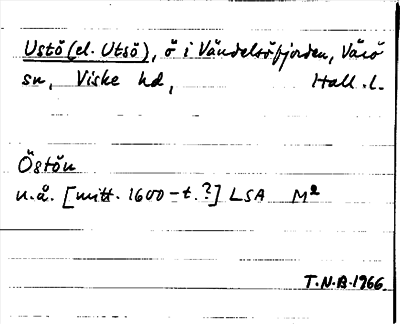 Ustö (el. Utsö), ö i Vändelsöfjorden, Värö
sn, Viske hd, Hall. l.
Östön
n.å. [mitt. 1600-t.?] LSA M²
T.N.B. 1966